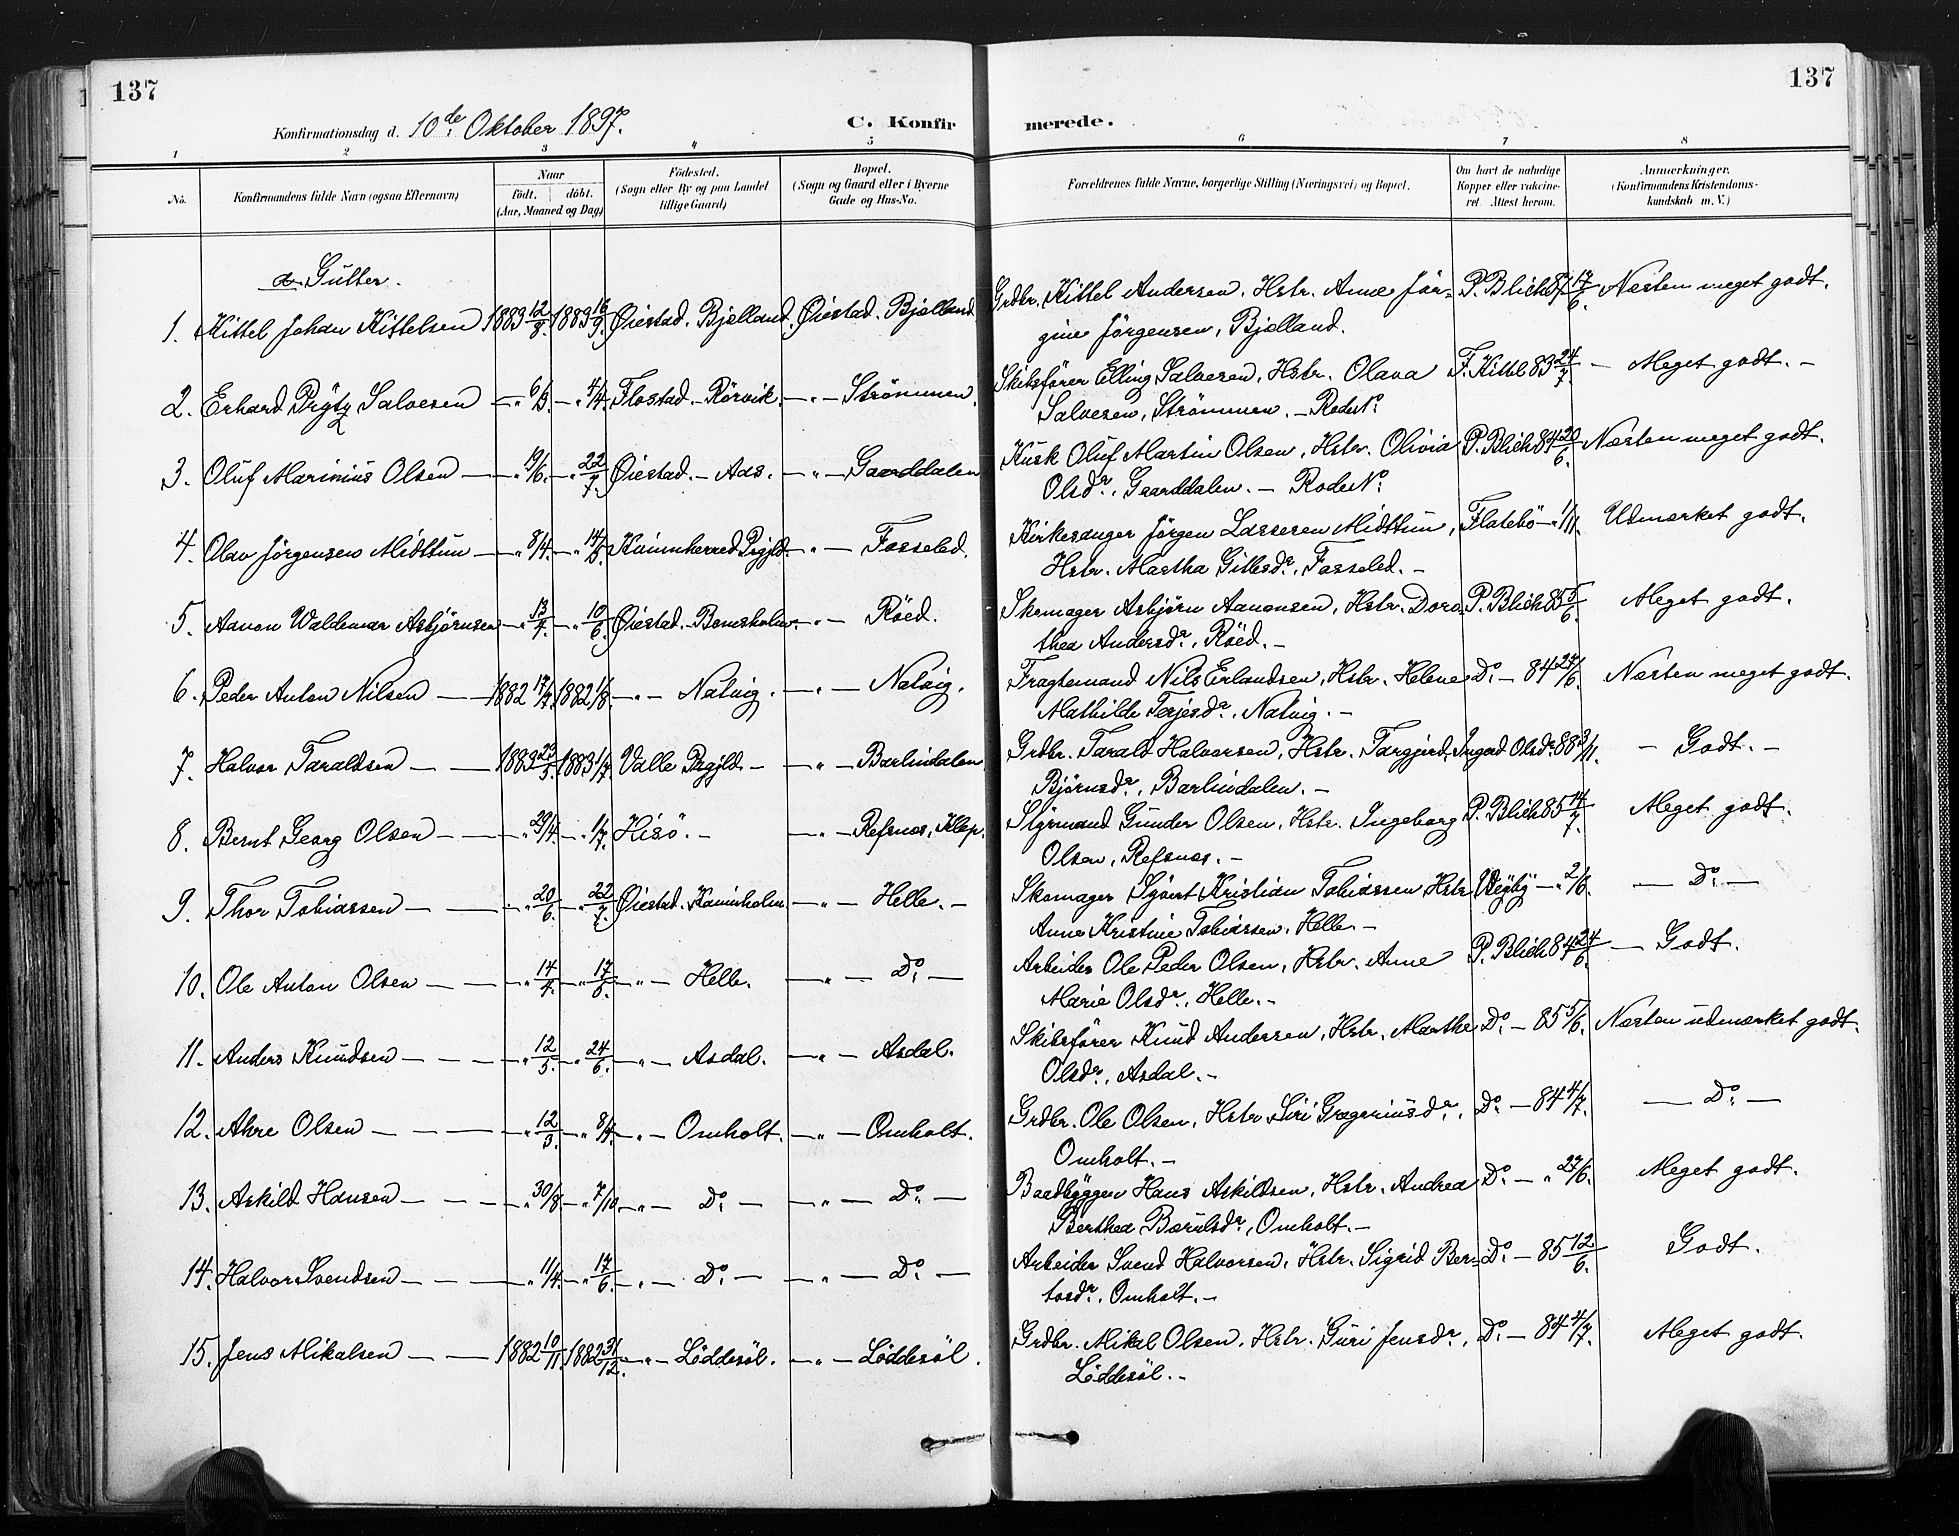 137
137
Konfirmationsdag d. 10de Oktober 1897.
C. Konfir
merede.
1 2 3 4 5 6 7 8
No. Konfirmandens fulde Navn (ogsaa Efternavn) Naar födt. döbt. (Aar, Maaned og Dag) Födested. (Sogn eller By og paa Landet tillige Gaard) Bopæl. (Sogn og Gaard eller i Byerne Gade og Hus-No. Forældrenes fulde Navne, borgerlige Stilling (Næringsvei) og Bopæl. Om havt de naturlige Kopper eller vaccineret. Attest herom. Anmærkninger. (Konfirmandens Kristendomskundskab m. V.)
a. Gutter.
1. Kittel Johan Kittelsen 1883 12/8. 1883 16/9. Öiestad. Bjelland. Öiestad. Bjelland. Grdbr. Kittel Andersen. Hstr. Anne Jör- P. Blich 87 17/6. Næsten meget godt.
gine Jörgensen, Bjelland.
2. Erhard Prytz Salvesen — " 6/3. — " 4/4. Flostad. - Rörvik. — " — Strömmen. Skibsförer Elling Salvesen, Hstr. Olava F. Kittel 83 24/7. — Meget godt. -
Salvesen, Strömmen. - Rode No:
3. Oluf Marinius Olsen — — " 19/6. — " 22/7. Öiestad. - Aas. — " — Gaarddalen Kusk Oluf Martin Olsen, Hstr. Olivia P. Blich 84 20/6. Næsten meget godt.
Olsdr., Gaarddalen. - Rode No:
4. Olav Jörgensen Midttun — " 8/4. — " 14/5. Kvinnherred Prgjld. — " — Fosseled. Kirkesanger Jörgen Lassesen Midttun, Flatebö — " 1/11. Udmærket godt.
Hstr. Martha Gittesdr., Fosseled. -
5. Aanon Waldemar Asbjörnsen — " 13/4. — " 10/6. Öiestad. - Bomsholm. — " — Röed. Skomager Asbjörn Aanonsen, Hstr. Doro- P. Blich 85 5/6. Meget godt.
thea Andersdr., Röed. -
6. Peder Anton Nilsen — — 1882 17/7. 1882 1/8. — " — Natvig. — " — Natvig. Fragtemand Nils Erlandsen, Hstr. Helene Do. — 84 27/6. Næsten meget godt.
Mathilde Terjesdr., Natvig. -
7. Halvor Taraldsen — — 1883 23/5. 1883 1/7. Valle Prgjld. — — " — Barlindalen. Grdbr. Tarald Halvorsen, Hstr. Targjerd Ingerd Olsdr. 88 3/11. — Godt. -
Björnsdr., Barlindalen. -
8. Bernt Georg Olsen — — " 29/4. — " 1/7. Hisö. — — " — Refsnes, Klep. Styrmand Gunder Olsen, Hstr. Ingeborg P. Blich 85 14/7. Meget godt.
Olsen, Refsnes. -
9. Thor Tobiassen — — " 20/6. — " 22/7. Öiestad. Kaminholm. — " — Helle. - Skomager Sjövert Kristian Tobiassen Hstr. Weyby — " 2/6. — Do. —
Anne Kristine Tobiassen, Helle. -
10. Ole Anton Olsen — — " 14/4. — " 17/6. — " — Helle. — " — Do. — Arbeider Ole Peder Olsen, Hstr. Anne P. Blich 84 24/6. — Godt.
Marie Olsdr., Helle. -
11. Anders Knudsen — — " 12/5. — " 24/6. — " — Asdal. — " — Asdal. Skibsförer Knud Andersen, Hstr. Marthe Do. — 85 5/6. Næsten udmærket godt.
Olsdr., Asdal. -
12. Akre Olsen — — " 12/3. — " 8/4. — " — Omholt. — " — Omholt. Grdbr. Ole Olsen, Hstr. Siri Gregeriusdr., Do. — 84 4/7. — Do. —
Omholt. -
13. Askild Hansen — — — " 30/8. — " 7/10. — " — Do. — — " — Do. — Baadbygger Hans Askildsen, Hstr. Andrea Do. — " 27/6. Meget godt.
Berthea Bærulsdr., Omholt. -
14. Halvor Svendsen — — " 11/4. — " 17/6. — " — Do. — — " — Do. — Arbeider Svend Halvorsen, Hstr. Sigrid Ber- Do. — 85 12/6. Godt.
tosdr., Omholt. -
15. Jens Mikalsen — — 1882 10/11. 1882 31/12. — " — Löddesöl. — " — Löddesöl. Grdbr. Mikal Olsen, Hstr. Guri Jensdr., Do. — 84 4/7. Meget godt.
Löddesöl. -